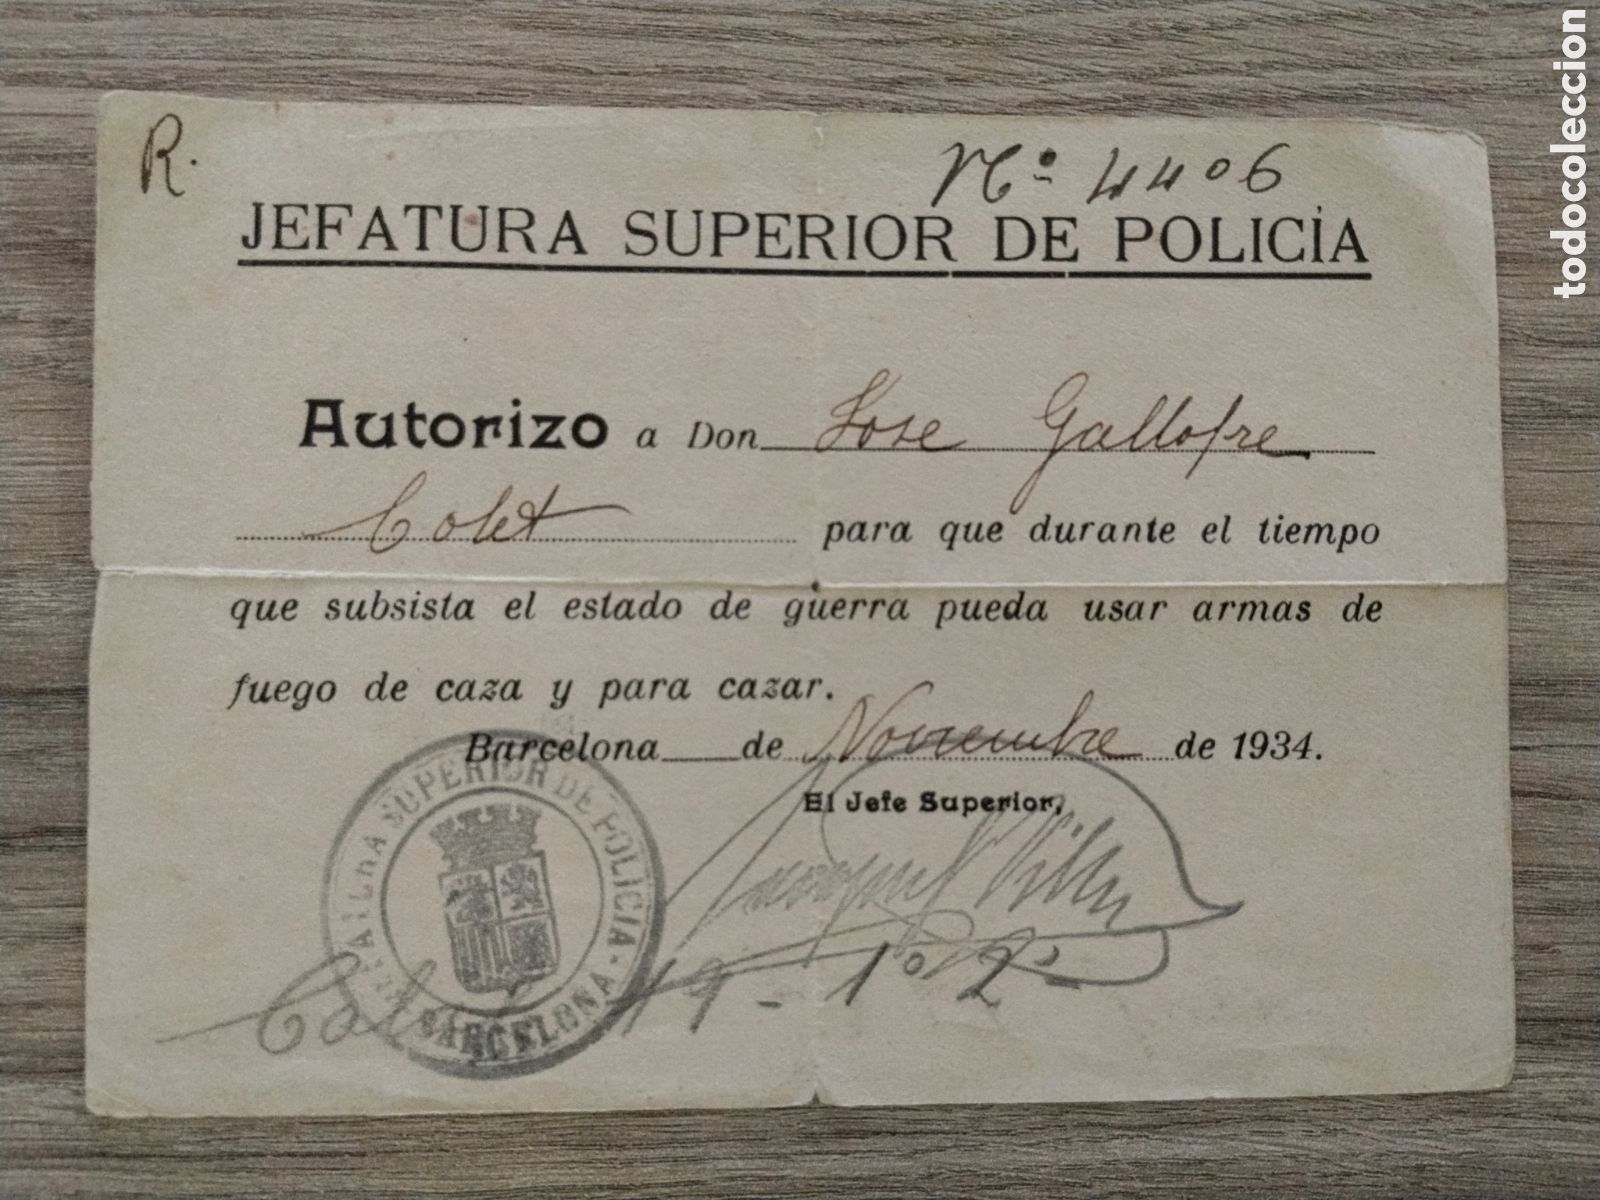 R.
Nº 4406
JEFATURA SUPERIOR DE POLICÍA
Autorizo a Don Jose Gallofre
Colet para que durante el tiempo
que subsista el estado de guerra pueda usar armas de
fuego de caza y para cazar.
Barcelona de Noviembre de 1934.
El Jefe Superior,
JEFATURA SUPERIOR DE POLICIA - BARCELONA
19-1º 2ª
todocoleccion